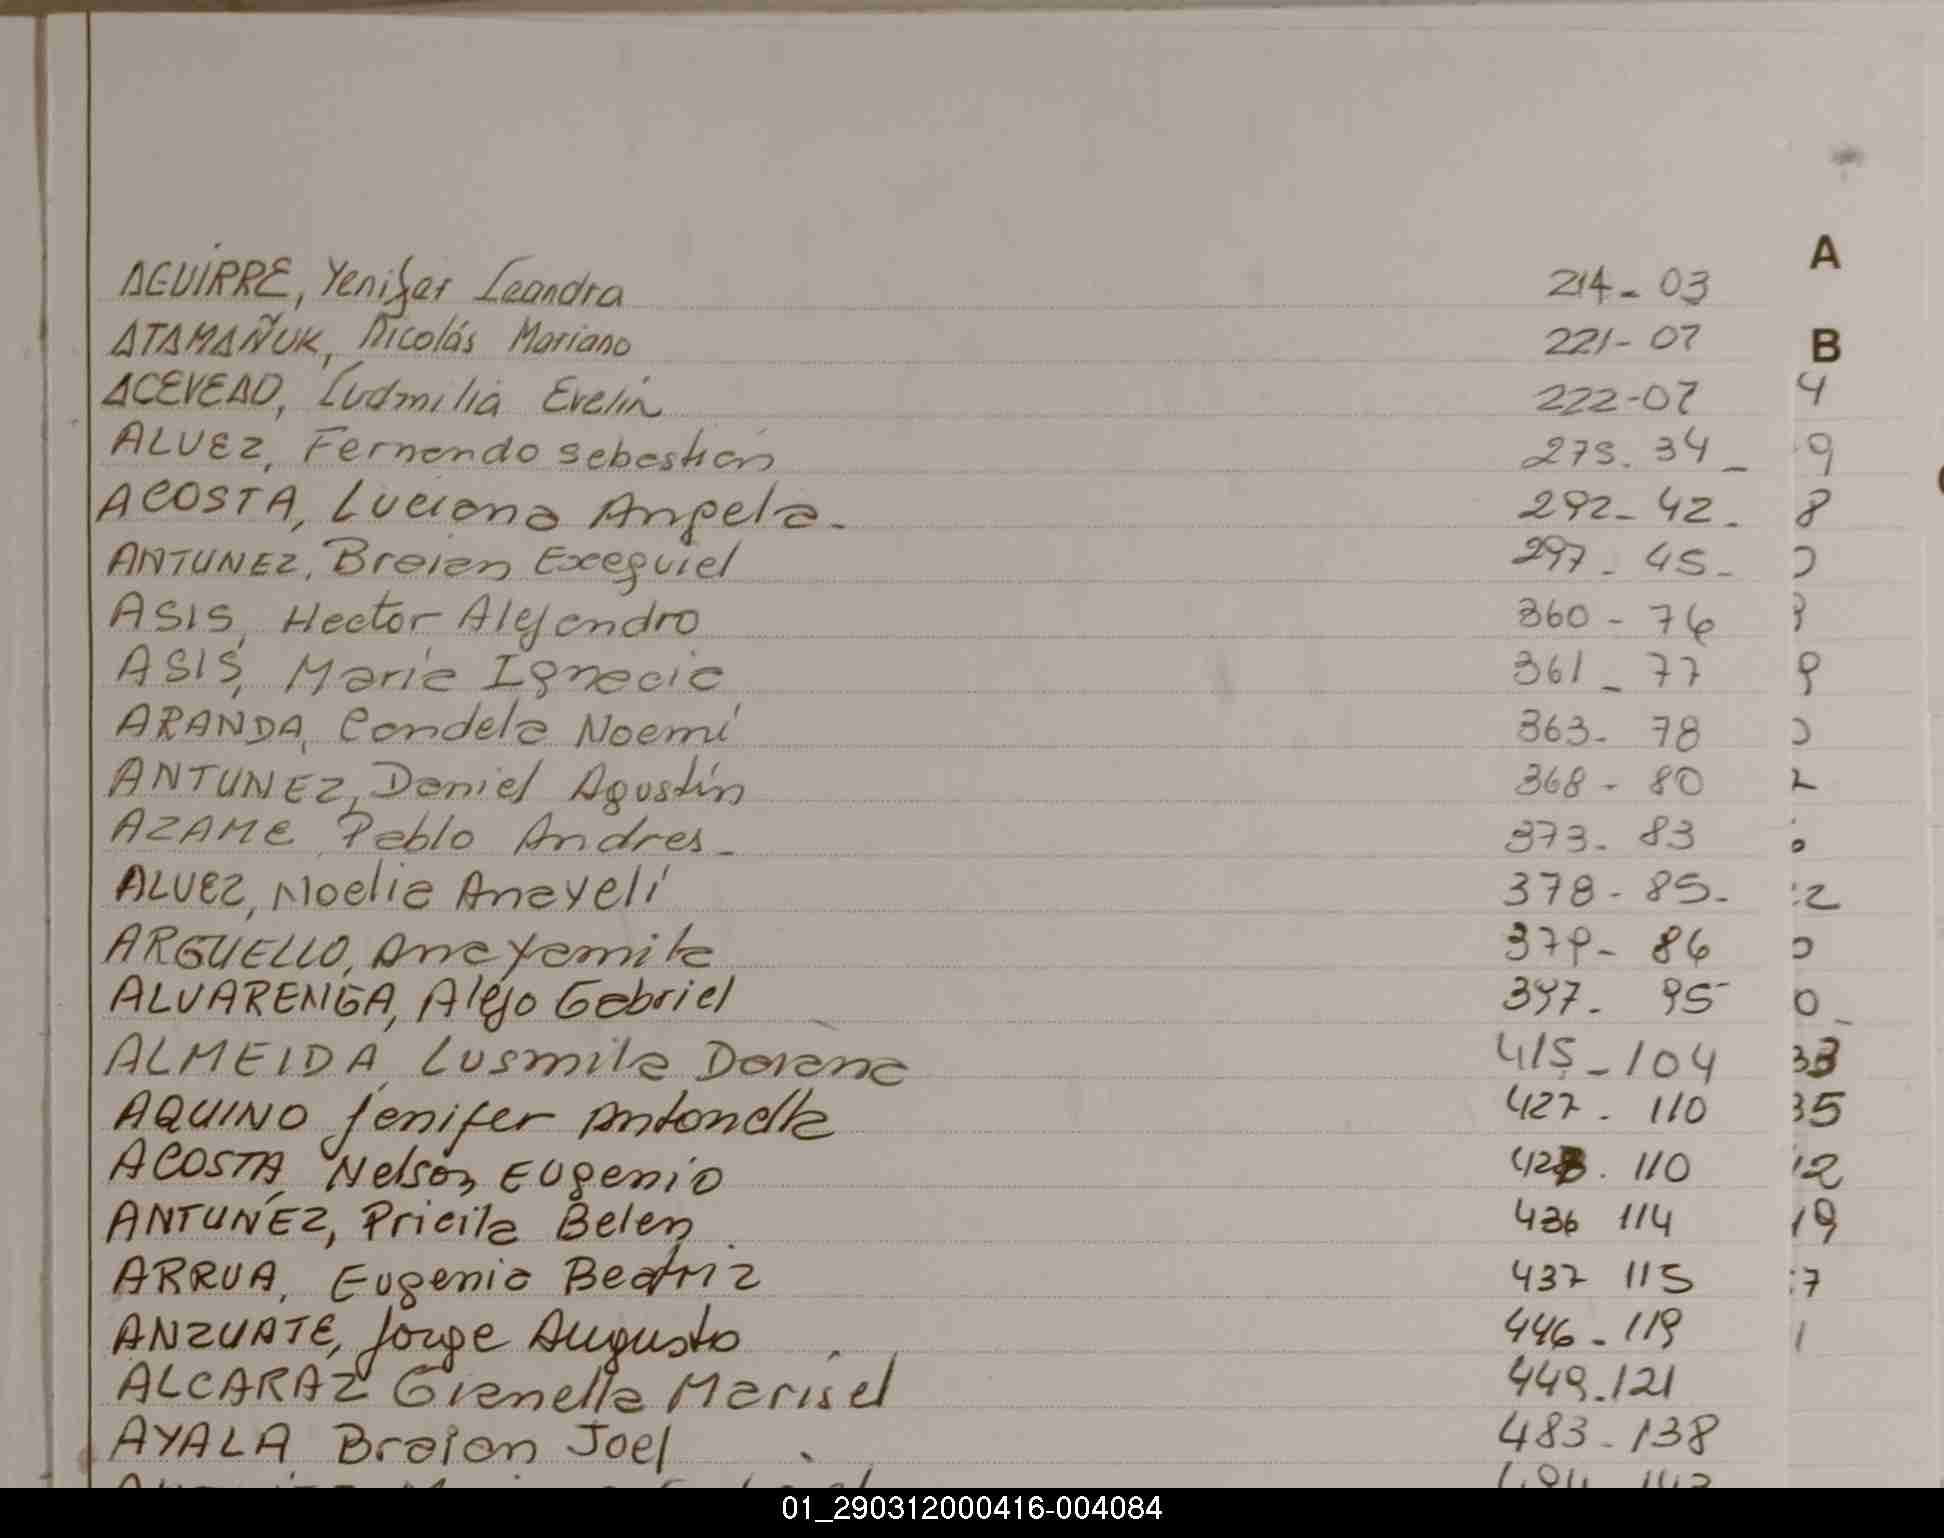 A
B
AGUIRRE, Yenifer Leandra 214- 03
ATAMAÑUK, Nicolás Mariano 221- 07
ACEVEDO, Ludmilia Evelin 222-07 4
ALVEZ, Fernando Sebastián 275. 34_ 9
ACOSTA, Luciana Angela. 292- 42. 8
ANTUNEZ, Braian Exequiel 297- 45-
ASIS, Hector Alejandro 360 - 76
ASIS, Maria Ignacia 361_ 77 9
ARANDA, Candela Noemí 363- 78
ANTUNEZ, Daniel Agustín 368 - 80 2
AZAME Pablo Andres_ 373- 83
ALVEZ, Noelia Anayelí 378 - 85- 2
ARGUELLO, Ana Yamila 379- 86
ALVARENGA, Alejo Gabriel 397- 95 0_
ALMEIDA, Lusmila Daiana 415_104 33
AQUINO Jenifer Antonella 427. 110 35
ACOSTA, Nelson Eugenio 428. 110 12
ANTUNEZ, Pricila Belen. 436 114 19
ARRUA, Eugenia Beatriz 437 115 7
ANZUATE, Jorge Augusto 446_119 1
ALCARAZ Gianella Marisel 449_121
AYALA Braian Joel 483_138
01_290312000416-004084